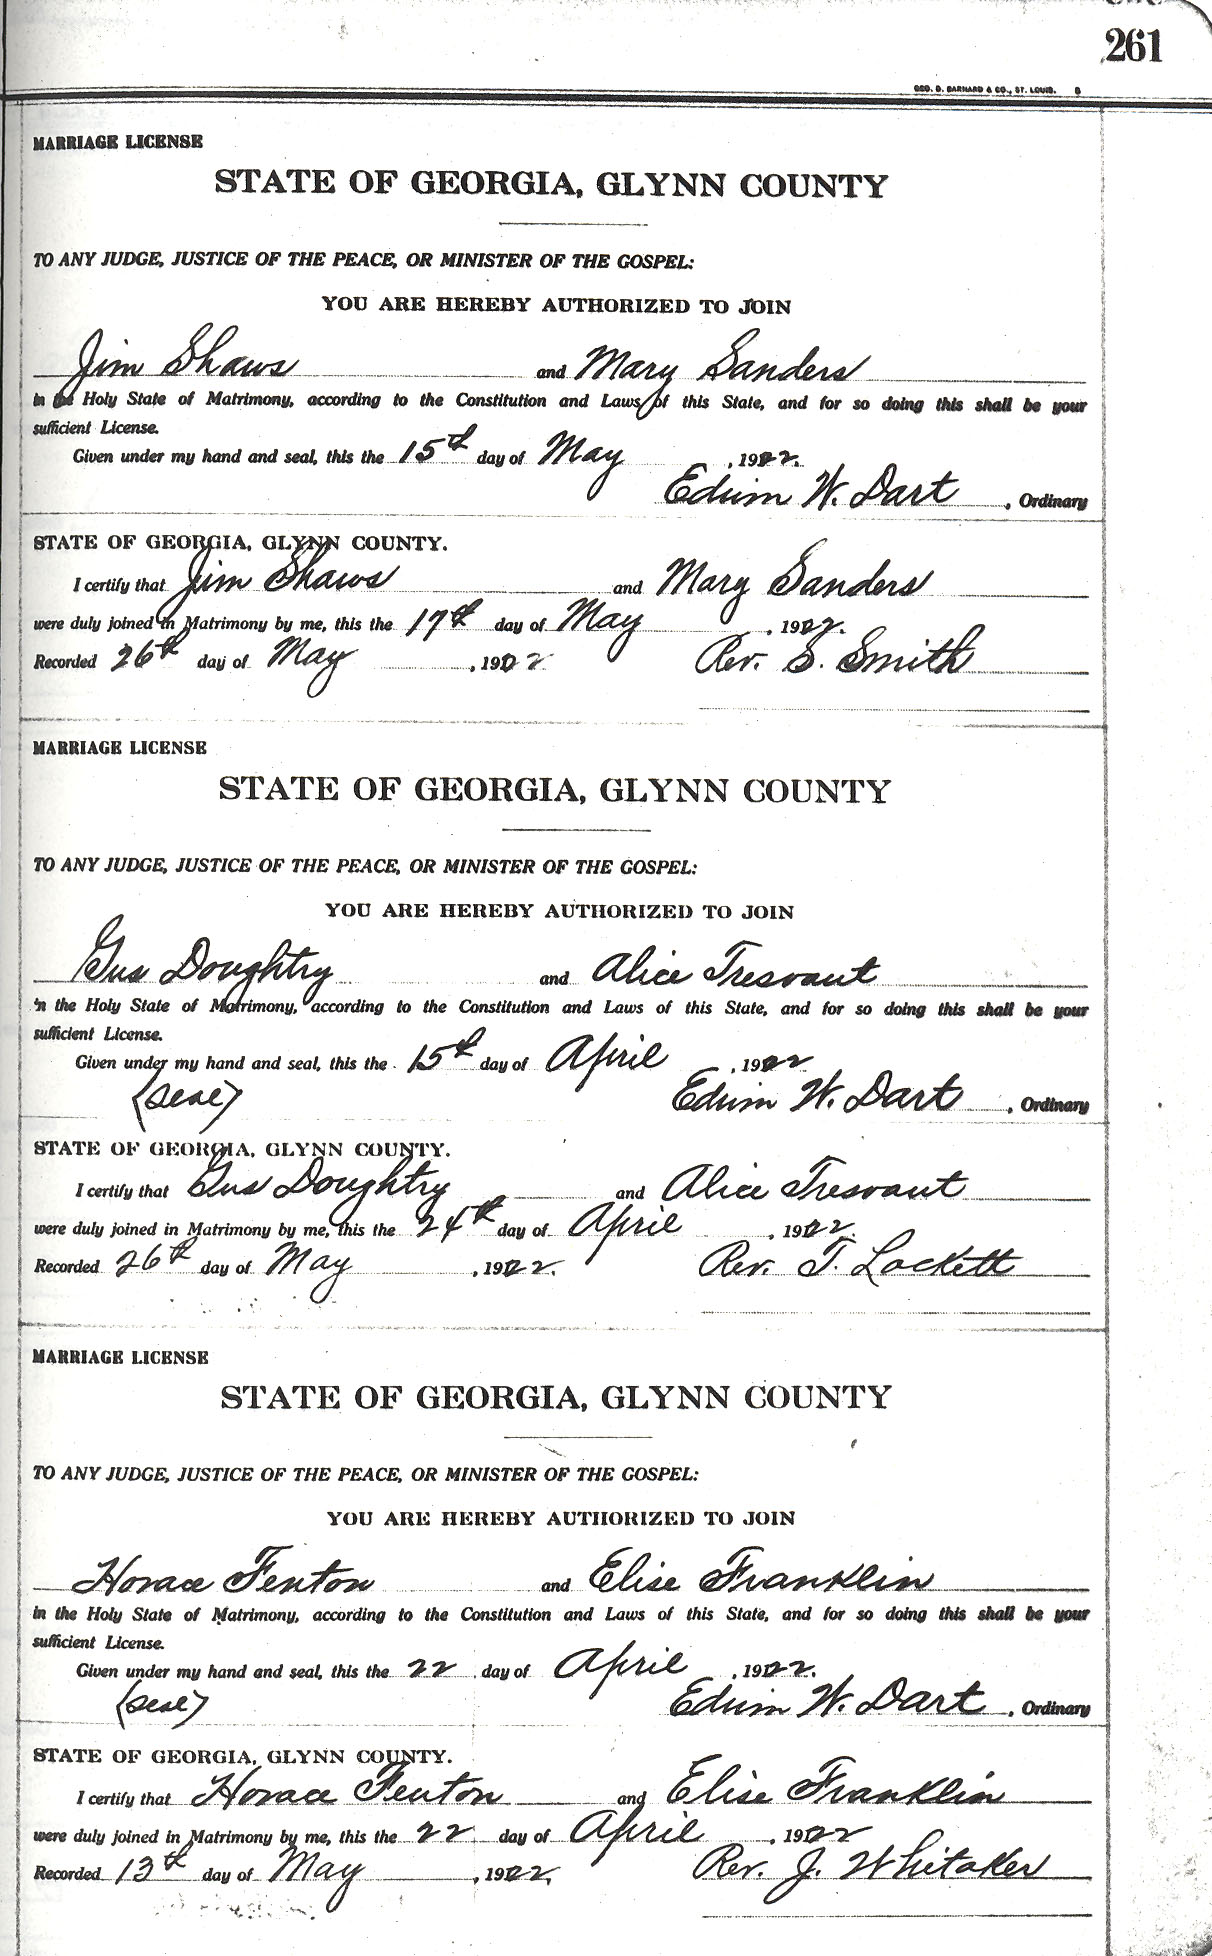 261
GEO. D. BARNARD & CO., ST. LOUIS.
MARRIAGE LICENSE
STATE OF GEORGIA, GLYNN COUNTY
TO ANY JUDGE, JUSTICE OF THE PEACE, OR MINISTER OF THE GOSPEL:
YOU ARE HEREBY AUTHORIZED TO JOIN
Jim Shaws and Mary Sanders
in the Holy State of Matrimony, according to the Constitution and Laws of this State, and for so doing this shall be your
sufficient License.
Given under my hand and seal, this the 15th day of May, 1922.
Edwin W. Dart, Ordinary
STATE OF GEORGIA, GLYNN COUNTY.
I certify that Jim Shaws and Mary Sanders
were duly joined in Matrimony by me, this the 17th day of May, 1922.
Recorded 26th day of May, 1922 Rev. S. Smith
MARRIAGE LICENSE
STATE OF GEORGIA, GLYNN COUNTY
TO ANY JUDGE, JUSTICE OF THE PEACE, OR MINISTER OF THE GOSPEL:
YOU ARE HEREBY AUTHORIZED TO JOIN
Gus Doughtry and Alice Tresvant
in the Holy State of Matrimony, according to the Constitution and Laws of this State, and for so doing this shall be your
sufficient License.
Given under my hand and seal, this the 15th day of April, 1922
(seal) Edwin W. Dart, Ordinary
STATE OF GEORGIA, GLYNN COUNTY.
I certify that Gus Doughtry and Alice Tresvant
were duly joined in Matrimony by me, this the 24th day of April, 1922.
Recorded 26th day of May, 1922. Rev. T. Lockett
MARRIAGE LICENSE
STATE OF GEORGIA, GLYNN COUNTY
TO ANY JUDGE, JUSTICE OF THE PEACE, OR MINISTER OF THE GOSPEL:
YOU ARE HEREBY AUTHORIZED TO JOIN
Horace Fenton and Elise Franklin
in the Holy State of Matrimony, according to the Constitution and Laws of this State, and for so doing this shall be your
sufficient License.
Given under my hand and seal, this the 22 day of April, 1922.
(seal) Edwin W. Dart, Ordinary
STATE OF GEORGIA, GLYNN COUNTY.
I certify that Horace Fenton and Elise Franklin
were duly joined in Matrimony by me, this the 22 day of April, 1922
Recorded 13th day of May, 1922, Rev. J. Whitaker